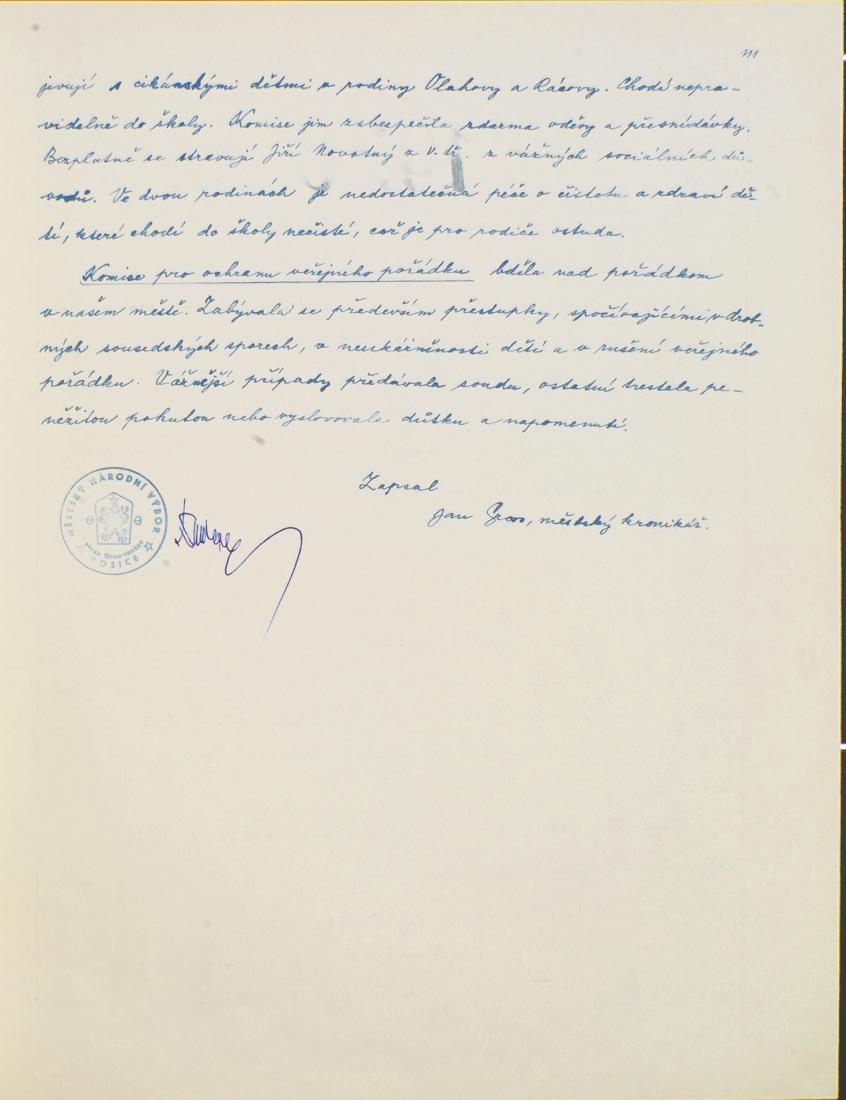 111
jevují s cikánskými dětmi v rodiny Olahovy a Rácovy. Chodí nepra-
videlně do školy. Komise jim zabezpečila zdarma oděvy a přesnídávky.
Bezplatně se stravují Jiří Novotný z V. tř. z vážných sociálních dů-
vodů. Ve dvou rodinách je nedostatečná péče o čistotu a zdraví dě-
tí, které chodí do školy nečisté, což je pro rodiče ostuda.
Komise pro ochranu veřejného pořádku bděla nad pořádkem
v našem městě. Zabývala se především přestupky, spočívajícími v drob-
ných sousedských sporech, v neukázněnosti dětí a v rušení veřejného
pořádku. Vážnější případy předávala soudu, ostatní trestala pe-
něžitou pokutou nebo vyslovovala důtku a napomenutí.
Zapsal
Jan městský kronikář.
MĚSTSKÝ NÁRODNÍ VÝBOR
okres Brno-venkov
ROSICE